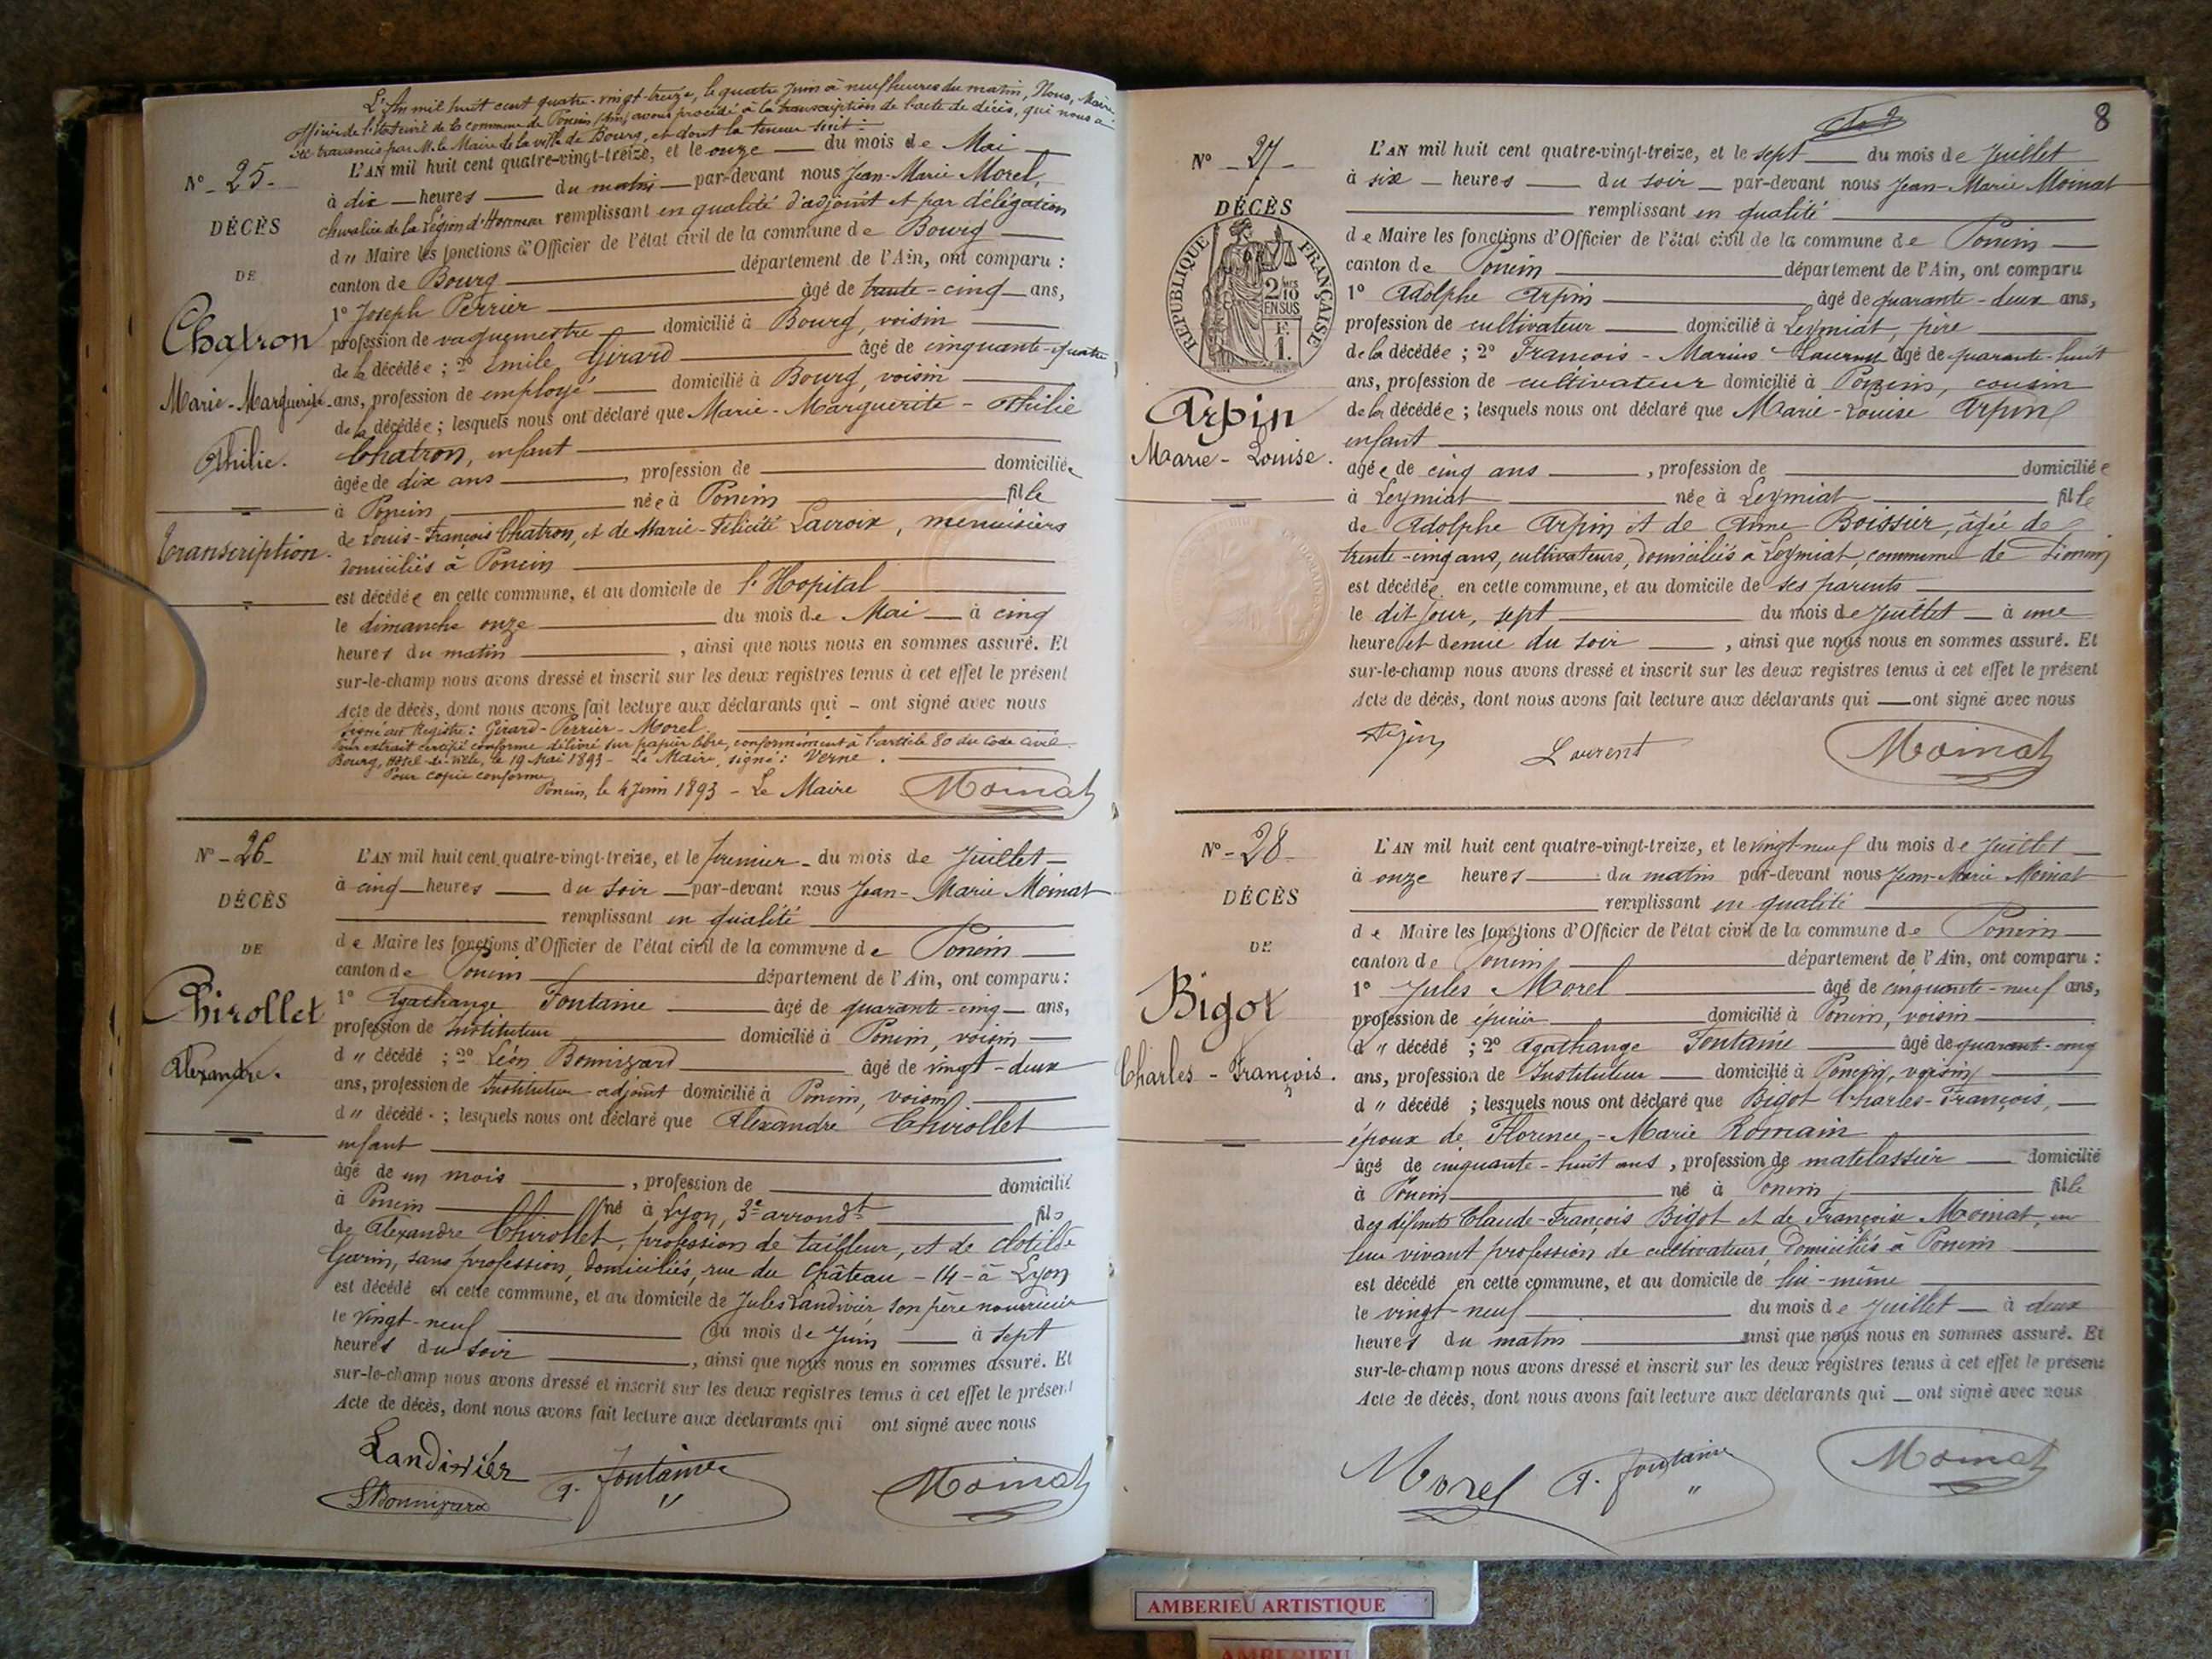 L'An mil huit cent quatre-vingt-treize, le quatre Juin à neuf heures du matin, Nous, Maire
officier de l'état civil de la commune de Poncin (Ain) avons procédé à la transcription de l'acte de décès, qui nous a
été transmis par M. le Maire de la ville de Bourg, et dont la teneur suit :
N° 25.
DÉCÈS
DE
Chatron
Marie-Marguerite
Othilie.
Transcription.
L'AN mil huit cent quatre-vingt-treize, et le onze du mois de Mai
à dix heures du matin par-devant nous Jean-Marie Morel,
chevalier de la Légion d'Honneur remplissant en qualité d'adjoint et par délégation
d " Maire les fonctions d'Officier de l'état civil de la commune de Bourg
canton de Bourg département de l'Ain, ont comparu :
1° Joseph Perrier âgé de trente-cinq ans,
profession de vaguemestre domicilié à Bourg, voisin
de la décédée ; 2° Emile Girard âgé de cinquante-quatre
ans, profession de employé domicilié à Bourg, voisin
de la décédée ; lesquels nous ont déclaré que Marie-Marguerite-Othilie
Chatron, enfant
âgée de dix ans , profession de domiciliée
à Poncin, née à Poncin fille
de Louis-François Chatron, et de Marie-Félicité Lacroix, menuisiers
domiciliés à Poncin
est décédée en cette commune, et au domicile de l'Hôpital
le dimanche onze du mois de Mai à cinq
heures du matin , ainsi que nous nous en sommes assuré. Et
sur-le-champ nous avons dressé et inscrit sur les deux registres tenus à cet effet le présent
Acte de décès, dont nous avons fait lecture aux déclarants qui - ont signé avec nous
Signé au Registre : Girard-Perrier-Morel
Pour extrait certifié conforme délivré sur papier libre, conformément à l'article 80 du Code civil
Bourg, Hôtel-de-Ville, le 19 Mai 1893 - Le Maire, signé : Verne.
Pour copie conforme
Poncin, le 4 Juin 1893 - Le Maire Moinat
N° 26
DÉCÈS
DE
Chirollet
Alexandre.
L'AN mil huit cent quatre-vingt-treize, et le premier du mois de Juillet
à cinq heures du soir par-devant nous Jean-Marie Moinat
remplissant en qualité
de Maire les fonctions d'Officier de l'état civil de la commune de Poncin
canton de Poncin département de l'Ain, ont comparu :
1° Agathange Fontaine âgé de quarante-cinq ans,
profession de Instituteur domicilié à Poncin, voisin
d " décédé ; 2° Léon Bonnizard âgé de vingt-deux
ans, profession de Instituteur-adjoint domicilié à Poncin, voisin
d " décédé ; lesquels nous ont déclaré que Alexandre Chirollet
enfant
âgé de un mois , profession de domicilié
à Poncin né à Lyon, 3e arrondt fils
de Alexandre Chirollet, profession de tailleur, et de Clotilde
Garin, sans profession, domiciliés, rue du Château - 14 - à Lyon
est décédé en cette commune, et au domicile de Jules Landivier, son père nourricier
le vingt-neuf du mois de Juin à sept
heures du soir , ainsi que nous nous en sommes assuré. Et
sur-le-champ nous avons dressé et inscrit sur les deux registres tenus à cet effet le présent
Acte de décès, dont nous avons fait lecture aux déclarants qui ont signé avec nous
Landivier A. Fontaine Moinat
LBonnizard
8
N° 27
DÉCÈS
REPUBLIQUE FRANÇAISE
2/10 EN SUS
1 F.
Arpin
Marie-Louise.
L'AN mil huit cent quatre-vingt-treize, et le sept du mois de Juillet
à six heures du soir par-devant nous Jean-Marie Moinat
remplissant en qualité
de Maire les fonctions d'Officier de l'état civil de la commune de Poncin
canton de Poncin département de l'Ain, ont comparu
1° Adolphe Arpin, âgé de quarante-deux ans,
profession de cultivateur domicilié à Leymiat, père
de la décédée ; 2° François-Marius Laurent âgé de quarante-huit
ans, profession de cultivateur domicilié à Poncin, cousin
de la décédée ; lesquels nous ont déclaré que Marie-Louise Arpin
enfant
âgée de cinq ans , profession de domiciliée
à Leymiat née à Leymiat fille
de Adolphe Arpin et de Anne Boissier, âgée de
trente-cinq ans, cultivateurs, domiciliés à Leymiat, commune de Poncin
est décédée en cette commune, et au domicile de ses parents
le dit jour, sept du mois de Juillet à une
heure et demie du soir , ainsi que nous nous en sommes assuré. Et
sur-le-champ nous avons dressé et inscrit sur les deux registres tenus à cet effet le présent
Acte de décès, dont nous avons fait lecture aux déclarants qui ont signé avec nous
Arpin Laurent Moinat
N° 28
DÉCÈS
DE
Bigot
Charles-François.
L'AN mil huit cent quatre-vingt-treize, et le vingt-neuf du mois de Juillet
à onze heures du matin par-devant nous Jean-Marie Moinat
remplissant en qualité
de Maire les fonctions d'Officier de l'état civil de la commune de Poncin
canton de Poncin département de l'Ain, ont comparu :
1° Jules Morel âgé de cinquante-neuf ans,
profession de épicier domicilié à Poncin, voisin
d " décédé ; 2° Agathange Fontaine âgé de quarante-cinq
ans, profession de Instituteur domicilié à Poncin, voisin
d " décédé ; lesquels nous ont déclaré que Bigot Charles-François,
époux de Florence-Marie Romain
âgé de cinquante-huit ans , profession de matelassier domicilié
à Poncin né à Poncin fils
des défunts Claude-François Bigot et de Françoise Moinat, en
leur vivant profession de cultivateurs, domiciliés à Poncin
est décédé en cette commune, et au domicile de lui-même
le vingt-neuf du mois de Juillet à deux
heures du matin ainsi que nous nous en sommes assuré. Et
sur-le-champ nous avons dressé et inscrit sur les deux registres tenus à cet effet le présent
Acte de décès, dont nous avons fait lecture aux déclarants qui ont signé avec nous
Morel A. Fontaine Moinat
AMBERIEU ARTISTIQUE
AMBERIEU